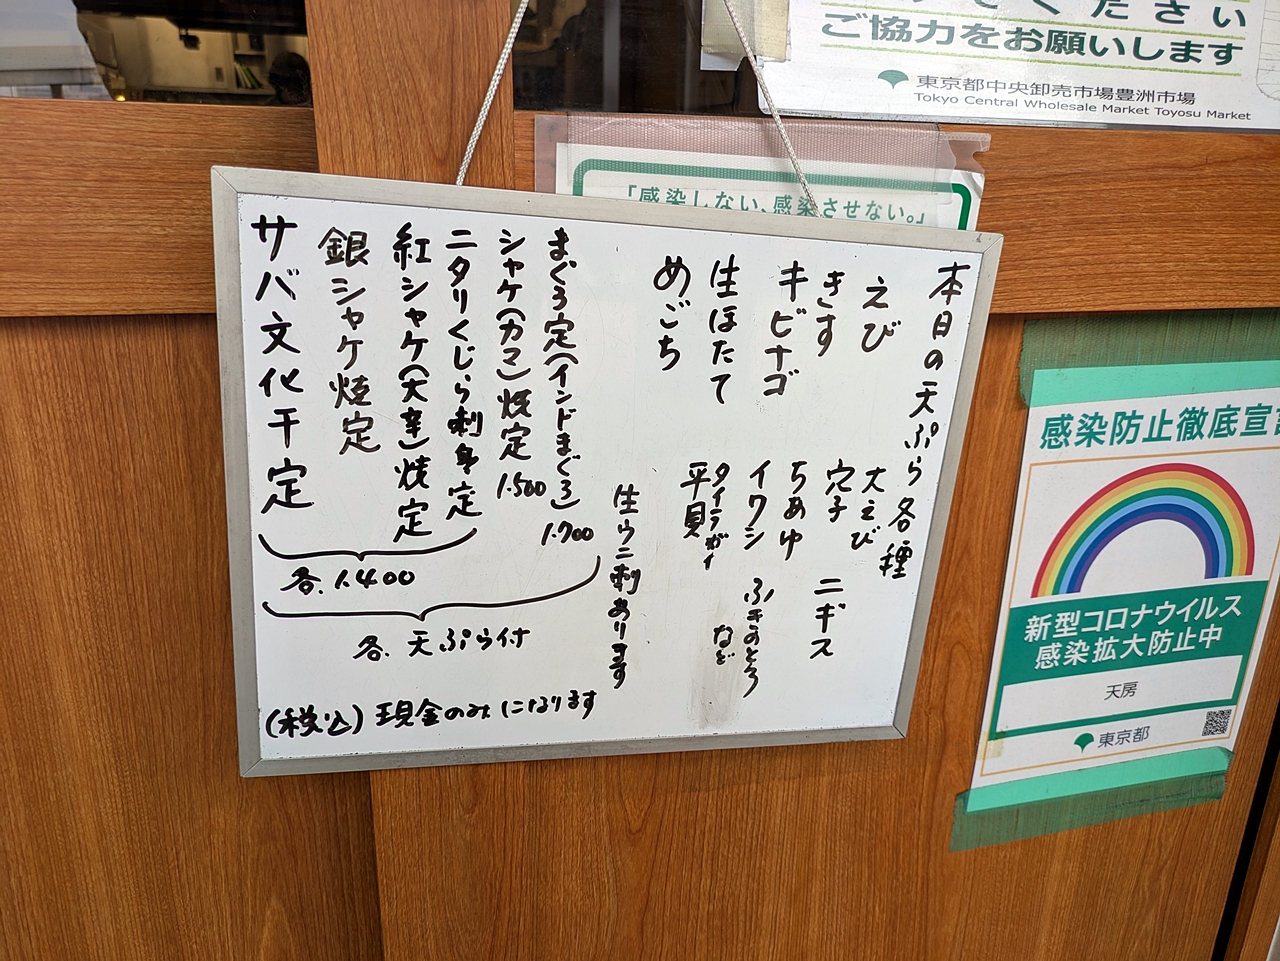 ください
ご協力をお願いします
東京都中央卸売市場豊洲市場
Tokyo Central Wholesale Market Toyosu Market
「感染しない、感染させない。」
本日の天ぷら各種
えび
きす
キビナゴ
生ほたて
めごち
大えび
穴子
ちあゆ
イワシ
タイラガイ
平貝
ニギス
ふきのとう
など
生ウニ刺あります
まぐろ定(インドまぐろ)
1.700
シャケ(カマ)焼定
1.500
ニタリくじら刺身定
紅シャケ(大辛)焼定
銀シャケ焼定
サバ文化干定
各.1.400
各.天ぷら付
(税込)現金のみになります
感染防止徹底宣言
新型コロナウイルス
感染拡大防止中
天房
東京都